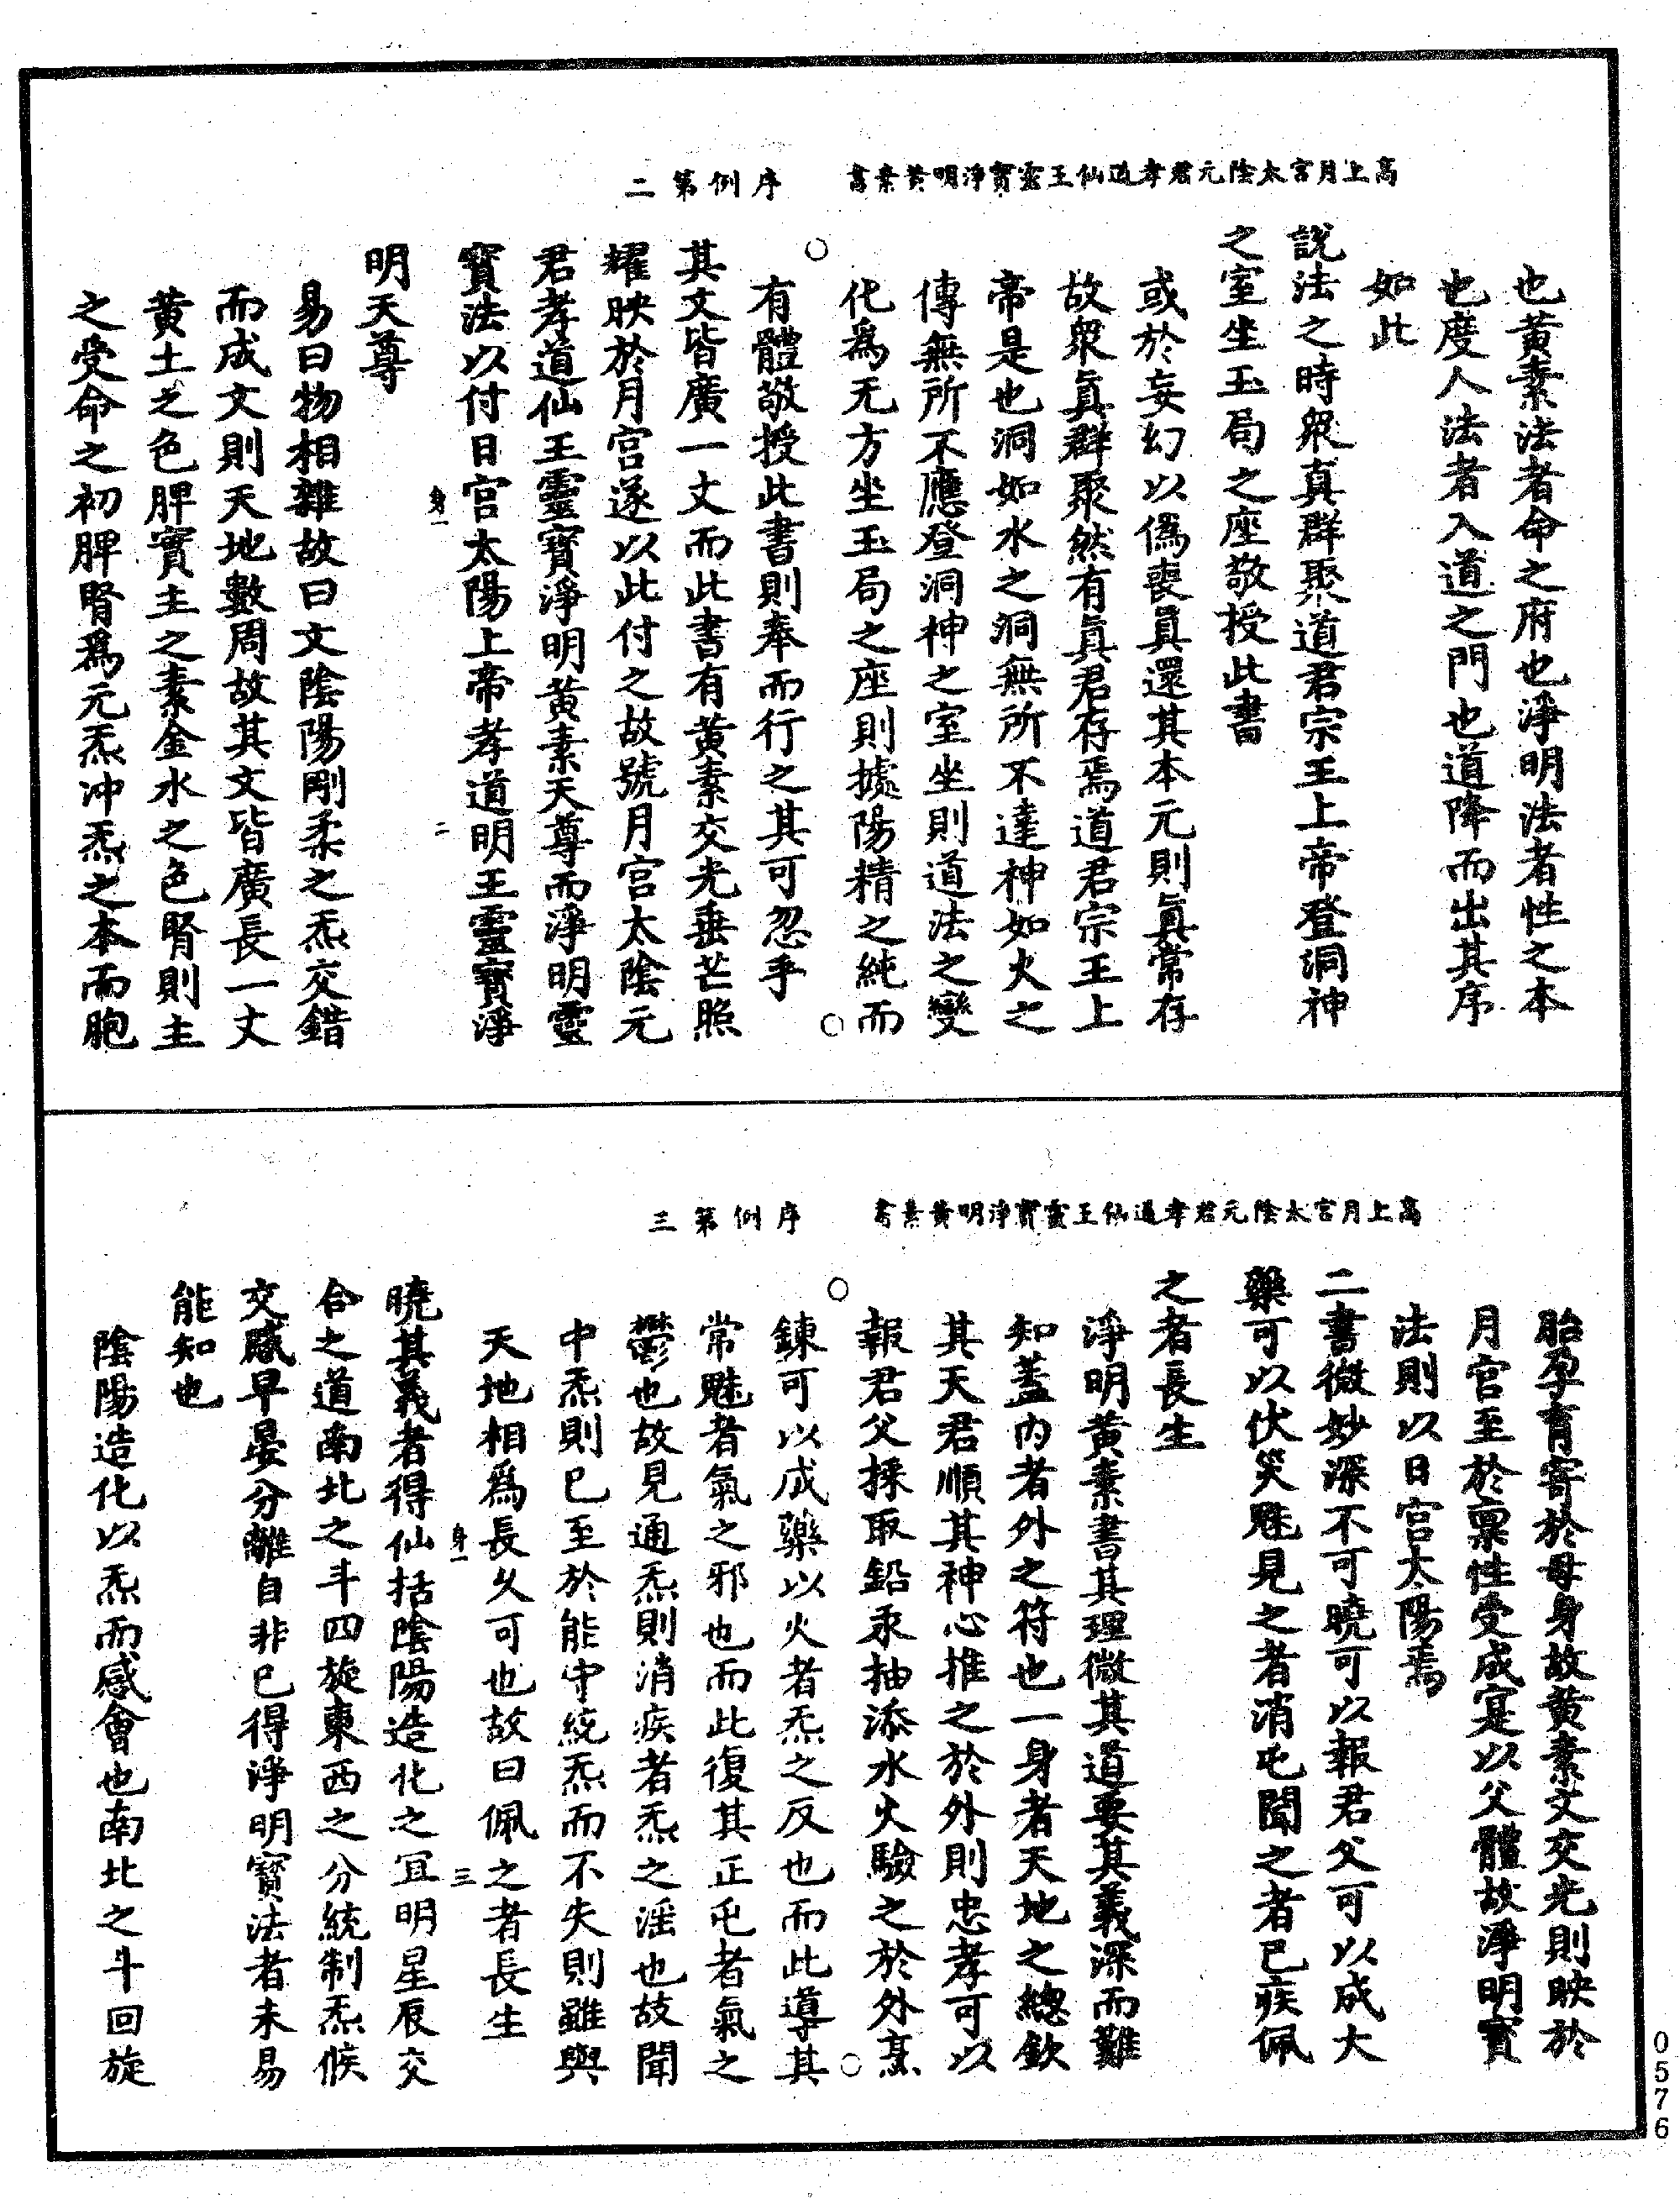 高上月宮太陰元君孝道仙王靈寶淨明黃素書　序例第二
也黃素法者命之府也淨明法者性之本
也度人法者入道之門也道降而出其序
如此
說法之時衆真群聚道君宗王上帝登洞神
之室坐玉局之座敬授此書
或於妄幻以僞喪眞還其本元則眞常存
故衆眞群聚然有眞君存焉道君宗王上
帝是也洞如水之洞無所不達神如火之
傳無所不應登洞神之室坐則道法之變
化爲无方坐玉局之座則據陽精之純而
有體敬授此書則奉而行之其可忽乎
其文皆廣一丈而此書有黃素交光垂芒照
耀映於月宮遂以此付之故號月宮太陰元
君孝道仙王靈寶淨明黃素天尊而淨明靈
寶法以付日宮太陽上帝孝道明王靈寶淨
身一　二
明天尊
易曰物相雜故曰文陰陽剛柔之炁交錯
而成文則天地數周故其文皆廣長一丈
黃土之色脾實主之素金水之色腎則主
之受命之初脾腎爲元炁冲炁之本而胞
高上月宮太陰元君孝道仙王靈寶淨明黃素書　序例第三
胎孕育寄於母身故黃素文交光則映於
月宮至於稟性受成寔以父體故淨明寶
法則以日宮太陽焉
二書微妙深不可曉可以報君父可以成大
藥可以伏災魅見之者消屯聞之者已疾佩
之者長生
淨明黃素書其理微其道要其義深而難
知蓋內者外之符也一身者天地之總欽
其天君順其神心推之於外則忠孝可以
報君父採取鉛汞抽添水火驗之於外烹
鍊可以成藥以火者炁之反也而此導其
常魅者氣之邪也而此復其正屯者氣之
鬱也故見通炁則消疾者炁之滛也故聞
中炁則已至於能守統炁而不失則雖與
天地相爲長久可也故曰佩之者長生
身一　三
曉其義者得仙括陰陽造化之冝明星辰交
合之道南北之斗四旋東西之分統制炁候
交感早晏分離自非已得淨明寶法者未易
能知也
陰陽造化以炁而感會也南北之斗回旋
0576